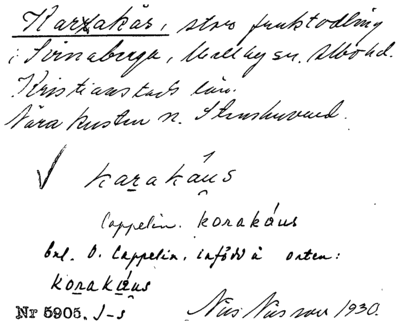 Karakås, stor fruktodling
i Svinaberga, Mellby sn. Albo hd.
Kristianstads län.
Nära kusten n. Stenshuvud.
✓ karakáus
Cappelin. korakáus
enl. O. Cappelin, infödd å orten:
korakáus
Nr 5905. J-s 1930.